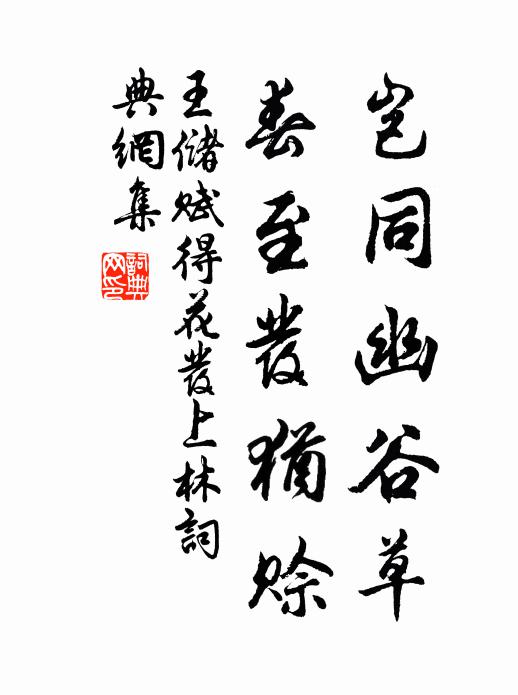 岂同幽谷草
春至發猶賒
王儲賦得花發上林詞
典網集
詞典
网印